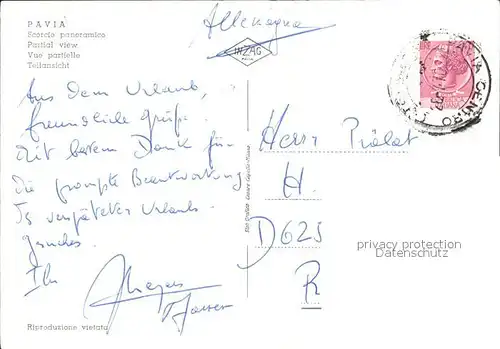 PAVIA
Scorcio panoramico
Partial view
Vue partielle
Teilansicht
Allemagne
INZAG
PAVIA
Aus dem Urlaub,
freundliche Grüße.
Mit bestem Dank für
die prompte Beantwortung
verspäteten Urlaubs-
gesuches.
Ihr
Herrn Prälat
H.
D 625
R
privacy protection
Datenschutz
CENTRO
Riproduzione vietata